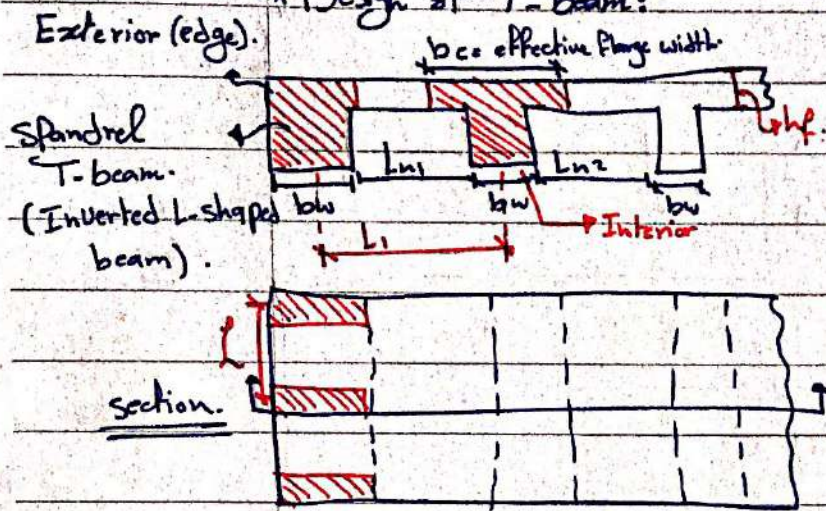 * Design of T-beam:
Exterior (edge).
be = effective flange width.
hf.
Spandrel
T-beam.
(Inverted L-shaped
beam).
Ln1
Ln2
bw
bw
bw
Interior
L1
L
section.